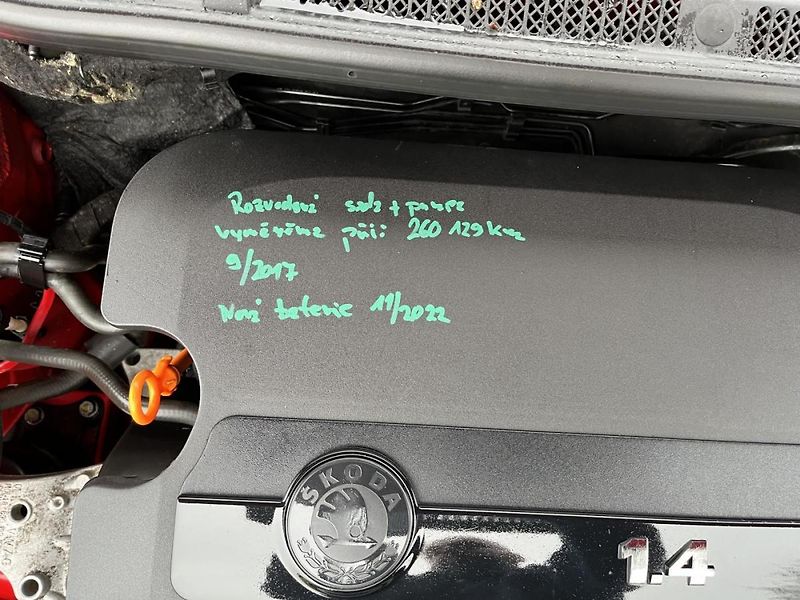 Rozvodová sada + pumpa
vyměněna při: 260 129 km
9/2017
Nová baterie 11/2022
ŠKODA
1.4